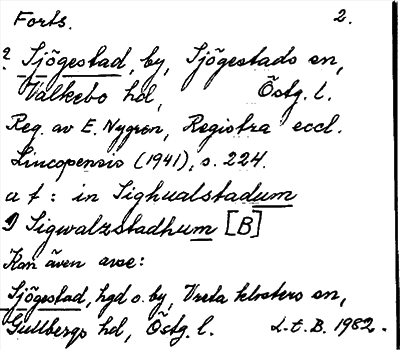 Forts. 2.
? Sjögestad, by, Sjögestads sn,
Valkebo hd, Östg. l.
Reg. av E. Nygren, Registra eccl.
Lincopensis (1941), s. 224.
a t : in Sighualstadum
Sigwalzstadhum [B]
Kan även avse:
Sjögestad, hgd o. by, Vreta klosters sn,
Gullbergs hd, Östg. l. L.t.B. 1982.